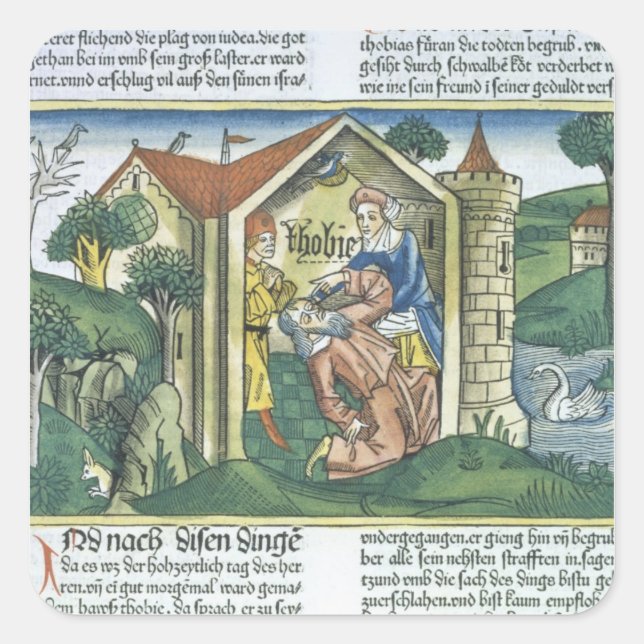 eret flichend die plag von iudea.die got
gethan bei im vmb sein groß laster.er ward
rnet.vnnd erschlug vil auß den sünen isra-
thobias für an die todten begrub.vnd
gesiht durch schwalbē kot verderbet w
wie ine sein freund ī seiner geduldt vers
thobie
And nach disen dingē
da es wz der hohzeytlich tag des her
ren.vñ eī gut morgēmal ward gema-
dem hawß thobie.da sprach er zu sey-
vndergegangen.er gieng hin vñ begrub
ber alle sein nehsten strafften in.sagen
tzund vmb die sach des dings bistu ge
zuerschlahen.vnd bist kaum empfloh